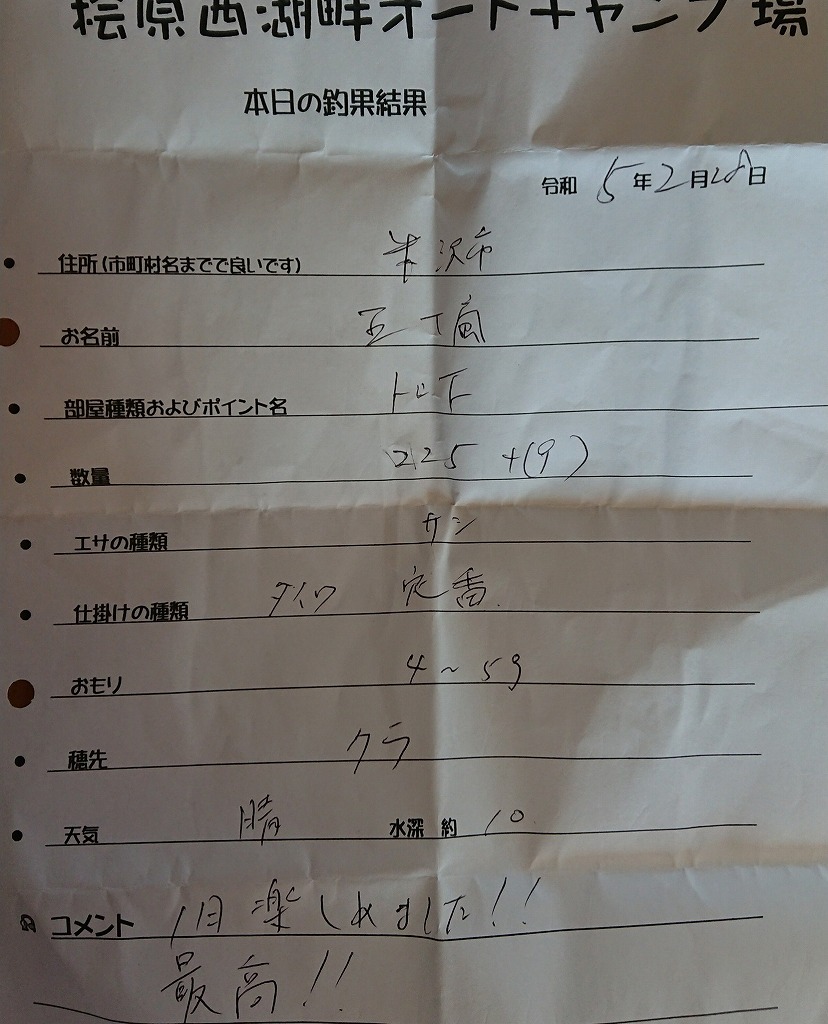 桧原西湖畔オートキャンプ場
本日の釣果結果
令和 5年2月28日
住所(市町村名までで良いです) 米沢市
お名前
部屋種類およびポイント名
数量 225 +(9)
エサの種類 サシ
仕掛けの種類 タイワ 定番.
おもり 4~5g
穂先 クラ
天気 晴 水深 約 10
コメント 1日楽しめました!!
最高!!